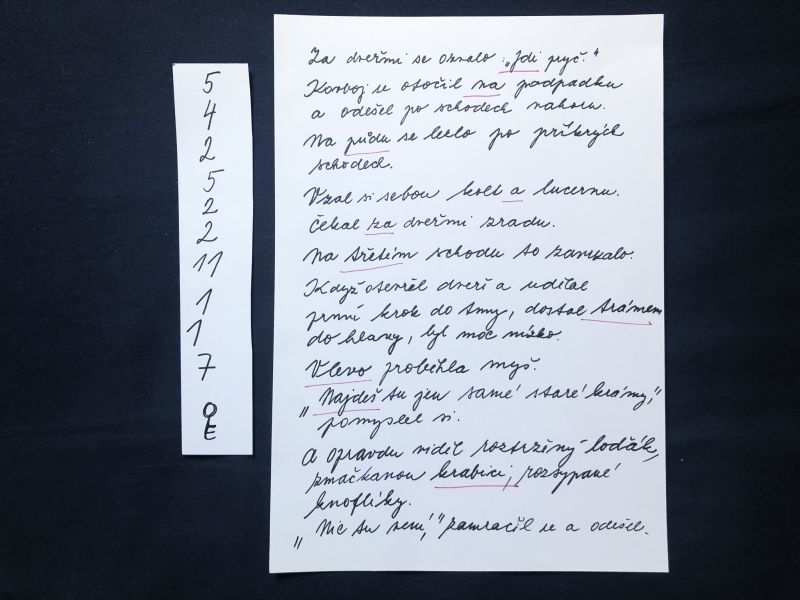 5
4
2
5
2
2
11
1
1
7
Za dveřmi se ozvalo: „Jdi pryč."
Kovboj se otočil na podpadku
a odešel po schodech nahoru.
Na půdu se lezlo po příkrých
schodech.
Vzal si sebou kolt a lucernu.
Čekal za dveřmi zradu.
Na třetím schodu to zavrzalo.
Když otevřel dveři a udělal
první krok do tmy, dostal trámem
do hlavy, byl moc nízko.
Vlevo proběhla myš.
„Najdeš tu jen samé staré krámy,"
pomyslel si.
A opravdu viděl roztržený lodžák,
zmačkanou krabici, rozsypané
knoflíky.
„Nic tu není," zamračil se a odešel.